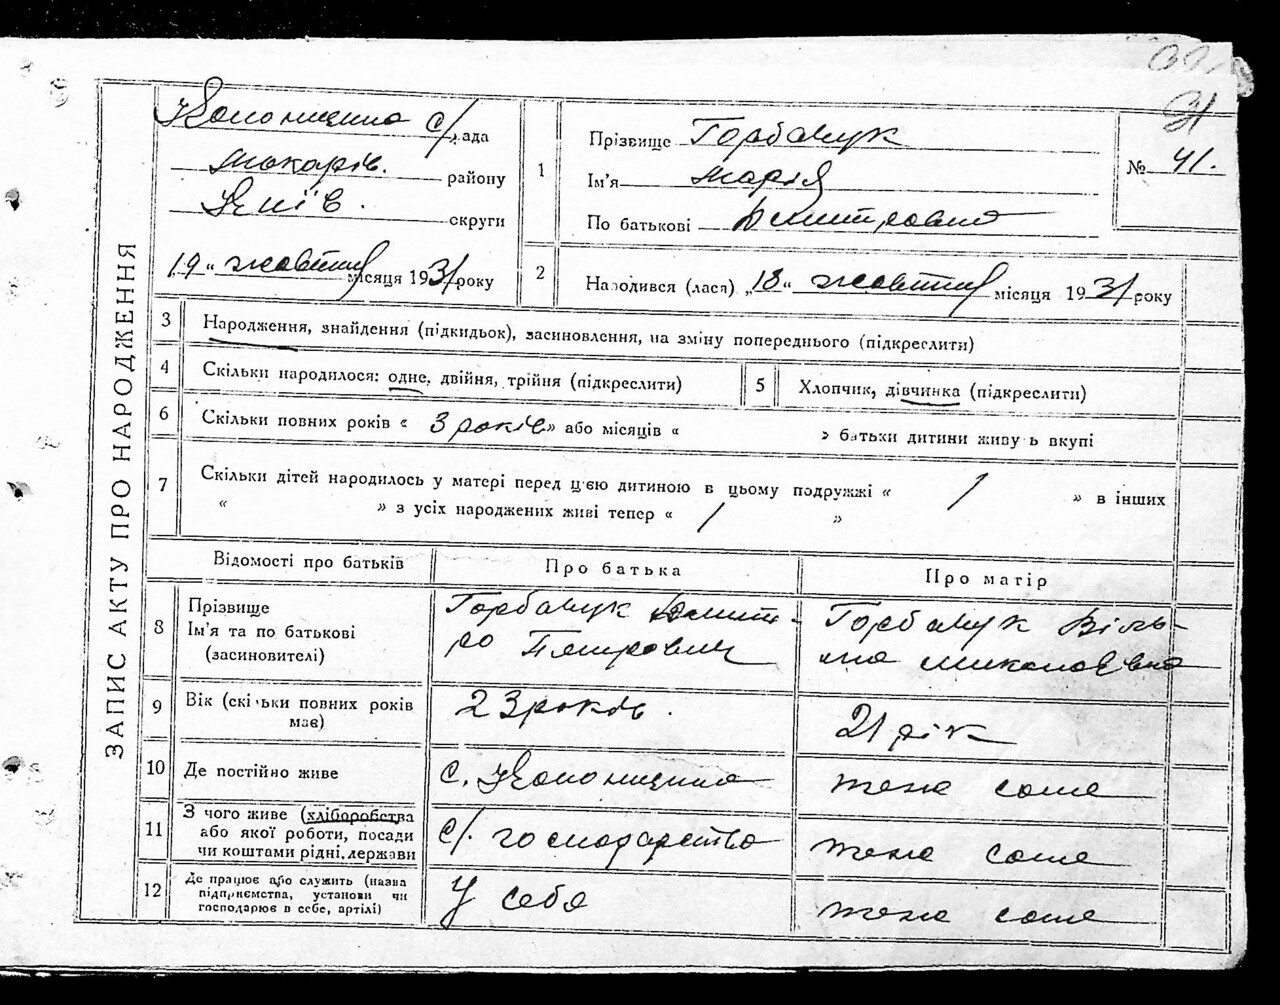 ЗАПИС АКТУ ПРО НАРОДЖЕННЯ
31
Колонщина с/рада
Макарів. району
Київ. округи
19 " жовтня місяця 1931 року
1 Прізвище Горбачук
Ім'я Марія
По батькові Дмитровна
№ 41.
2 Народився (лася) „18" жовтня місяця 1931 року
3 Народження, знайдення (підкидьок), засиновлення, на зміну попереднього (підкреслити)
4 Скільки народилося: одне, двійня, трійня (підкреслити)
5 Хлопчик, дівчинка (підкреслити)
6 Скільки повних років « 3 років » або місяців « » батьки дитини живуть вкупі
7 Скільки дітей народилось у матері перед цією дитиною в цьому подружжі « 1 » в інших
« » з усіх народжених живі тепер « 1 »
Відомості про батьків Про батька Про матір
8 Прізвище
Ім'я та по батькові
(засиновителі)
Горбачук Дмит-
ро Петрович
Горбачук Віль-
на Миколаївна
9 Вік (скільки повних років
має)
23 років.
21 рік
10 Де постійно живе с. Колонщина теж саме
11 З чого живе (хліборобства
або якої роботи, посади
чи коштами рідні, держави
с/. господарство теж саме
12 Де працює або служить (назва
підприємства, установи чи
господарює в себе, артілі)
У себе теж саме